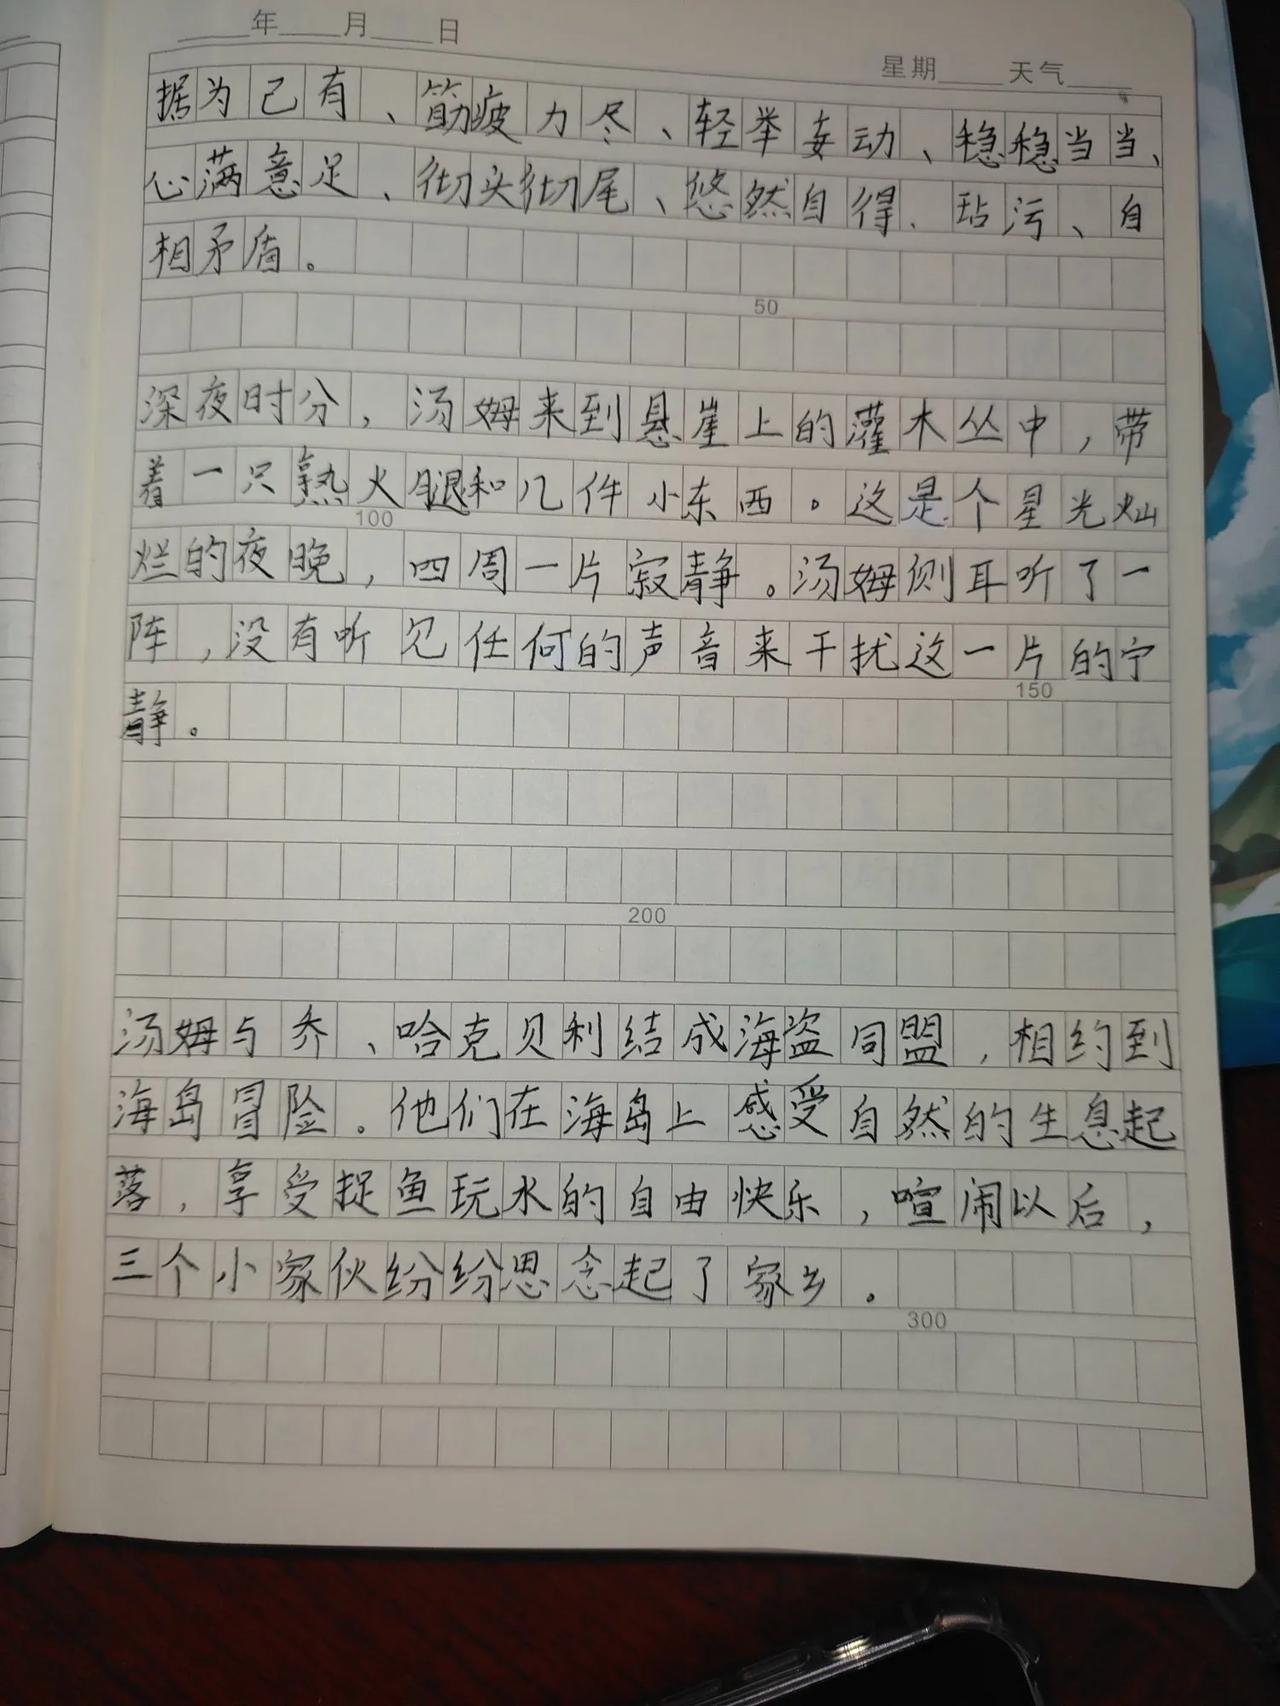 年 月 日
星期 天气
据为己有、筋疲力尽、轻举妄动、稳稳当当、
心满意足、彻头彻尾、悠然自得、玷污、自
相矛盾。
50
深夜时分，汤姆来到悬崖上的灌木丛中，带
着一只熟火腿和几件小东西。这是个星光灿
100
烂的夜晚，四周一片寂静。汤姆侧耳听了一
阵，没有听见任何的声音来干扰这一片的宁
150
静。
200
汤姆与乔、哈克贝利结成海盗同盟，相约到
海岛冒险。他们在海岛上感受自然的生息起
落，享受捉鱼玩水的自由快乐，喧闹以后，
三个小家伙纷纷思念起了家乡。
300